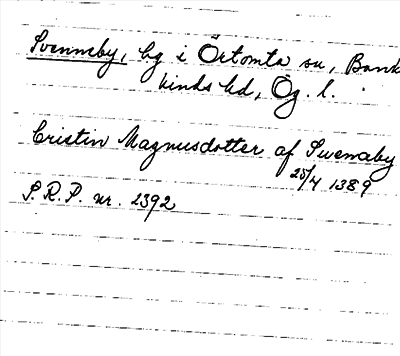 Svenneby, by i Örtomta sn, Bank
kinds hd, Ög. l.
Cristin Magnusdotter af Swenaby
25/4 1389
S.R.P. nr. 2392